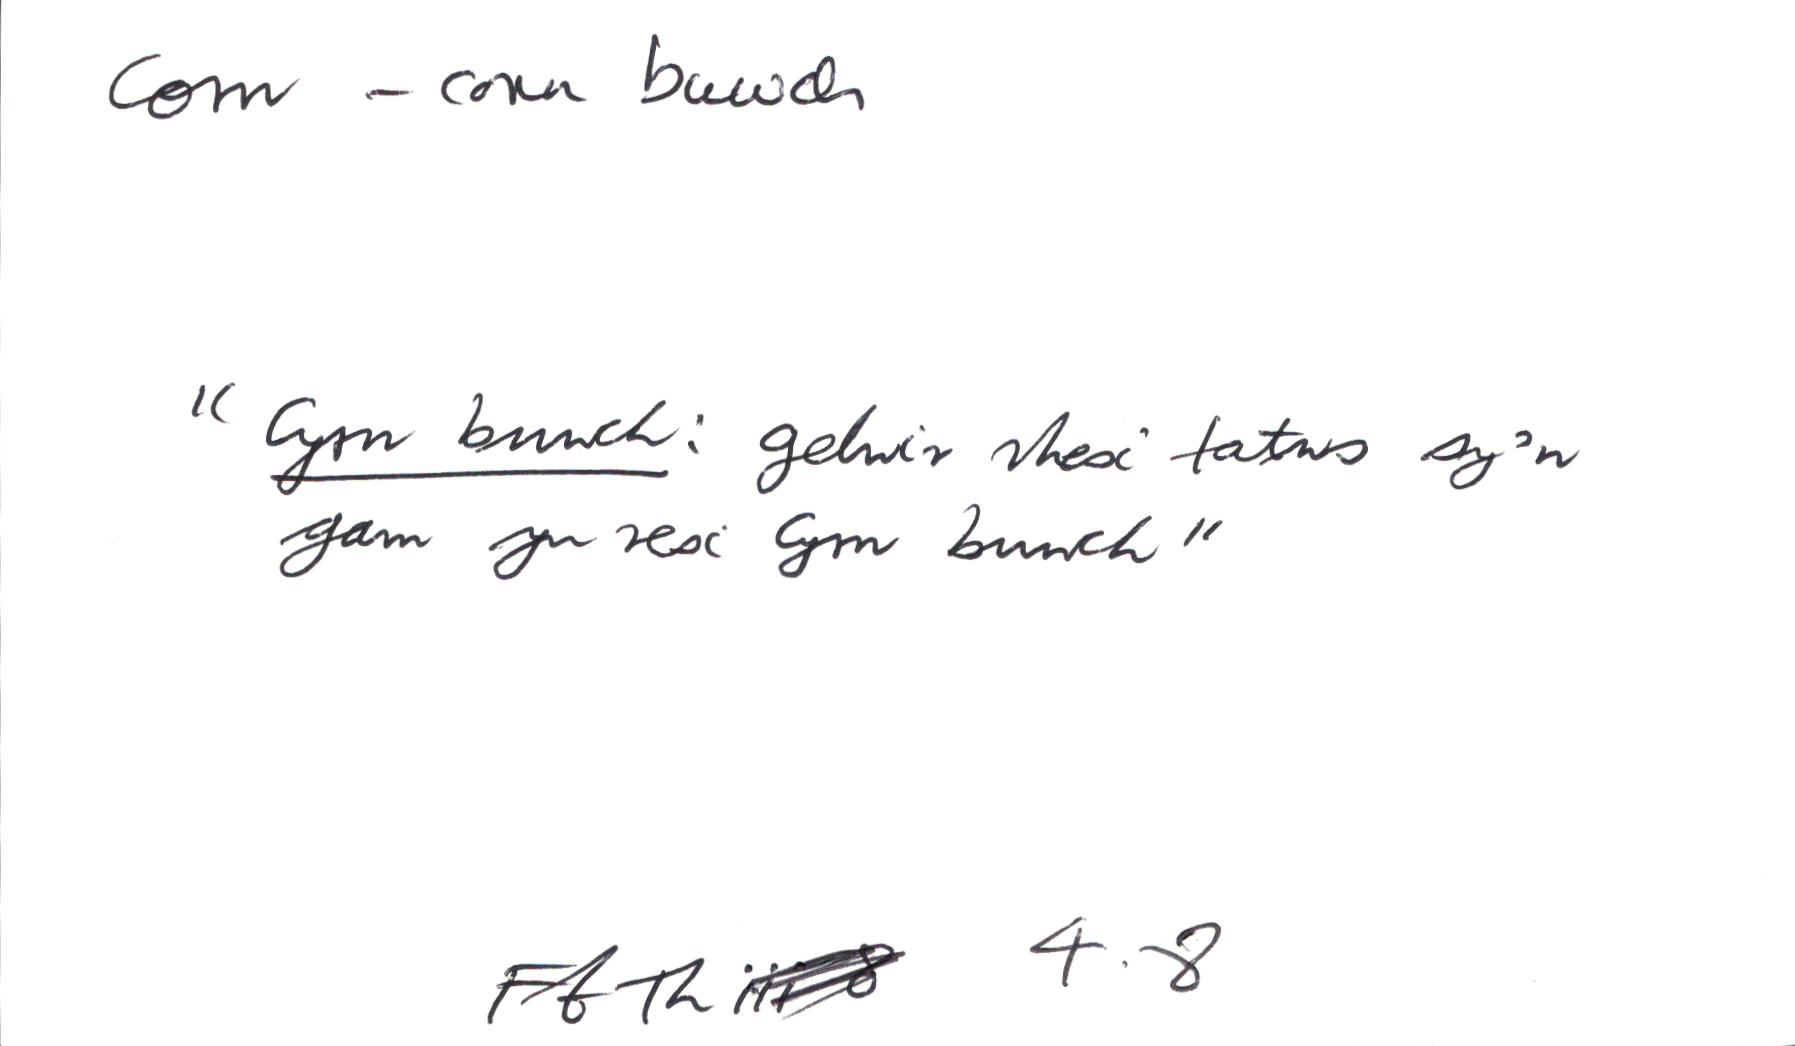 Corn - corn buwch
"Cyrn buwch: gelwir rhesi tatws sy'n
gam yn resi Cyrn buwch"
Ff Th 4.8